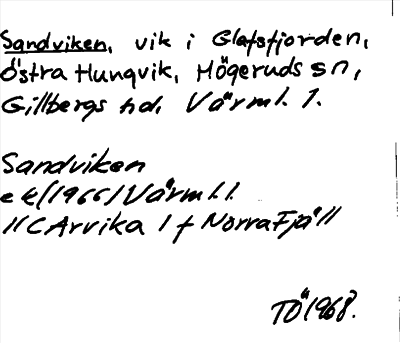 Sandviken, vik i Glafsfjorden,
Östra Hungvik, Högeruds sn,
Gillbergs hd, Värml. l.
Sandviken
ek (1966) Värml. l.
11C Arvika 1 f Norra Fjäll
TÖ 1968.